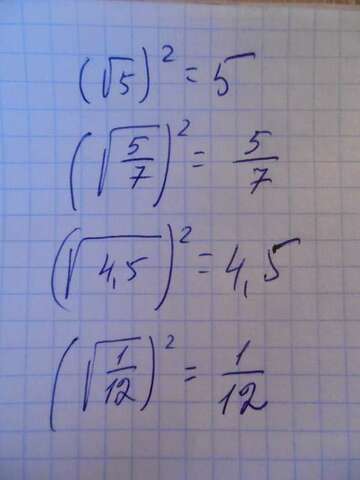 (√5)² = 5
(√(5/7))² = 5/7
(√4,5)² = 4,5
(√(1/12))² = 1/12